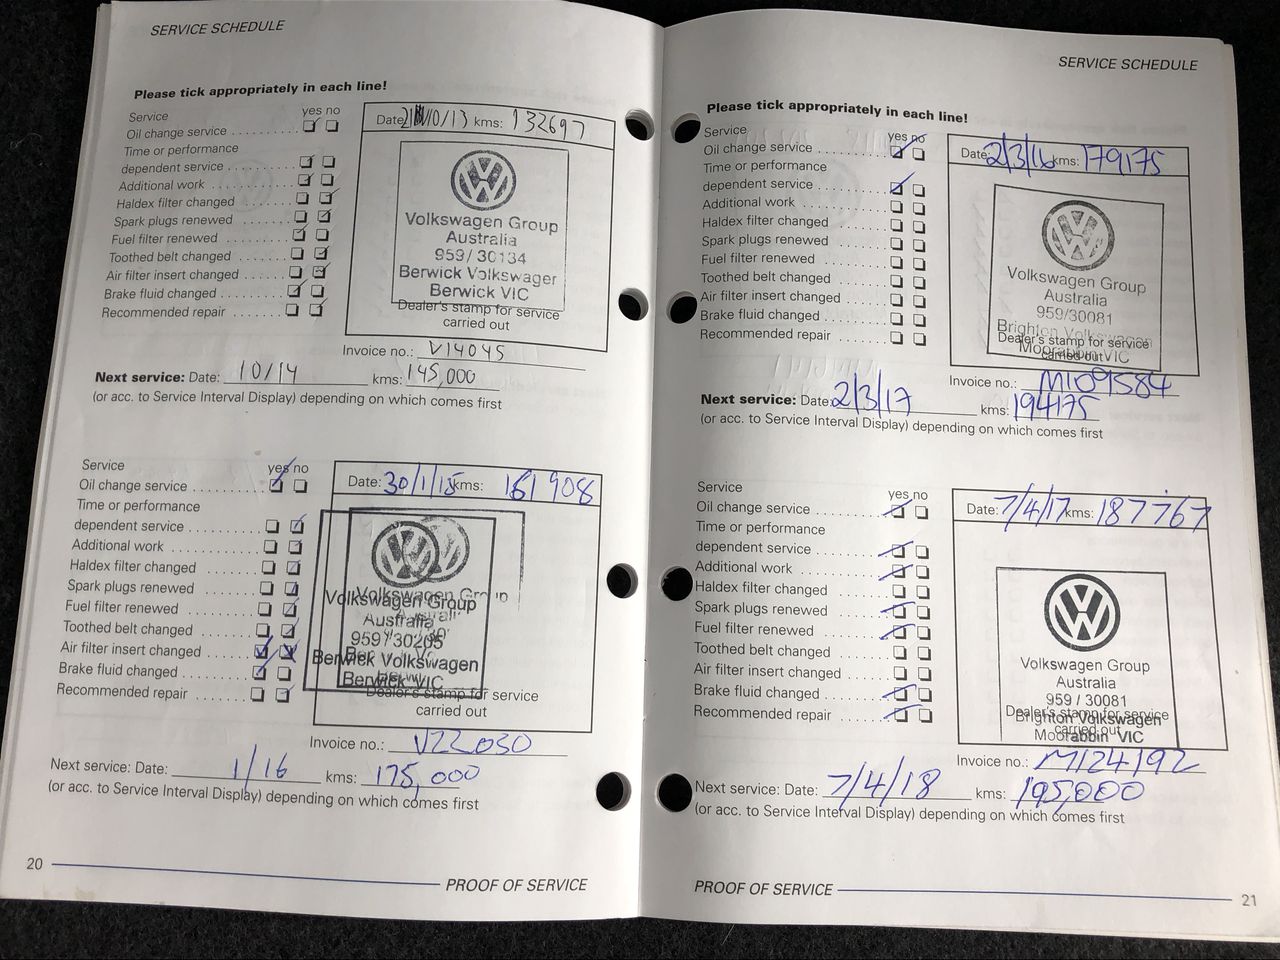 SERVICE SCHEDULE
Please tick appropriately in each line!
yes no
Service
Oil change service
Time or performance
dependent service
Additional work
Haldex filter changed
Spark plugs renewed
Fuel filter renewed
Toothed belt changed
Air filter insert changed
Brake fluid changed
Recommended repair
Date: /10/13 kms: 132697
Volkswagen Group
Australia
959/30134
Berwick Volkswagen
Berwick VIC
Dealer's stamp for service
carried out
Invoice no.: V14045
Next service: Date: 10/14 kms: 145,000
(or acc. to Service Interval Display) depending on which comes first
Service
yes no
Oil change service
Time or performance
dependent service
Additional work
Haldex filter changed
Spark plugs renewed
Fuel filter renewed
Toothed belt changed
Air filter insert changed
Brake fluid changed
Recommended repair
Date: 30/1/15 kms: 161 908
Volkswagen Group
Australia
959/30205
Berwick Volkswagen
Berwick VIC
Dealer's stamp for service
carried out
Invoice no.: V22030
Next service: Date: 1/16 kms: 175,000
(or acc. to Service Interval Display) depending on which comes first
20
PROOF OF SERVICE
SERVICE SCHEDULE
Please tick appropriately in each line!
Service
yes no
Oil change service
Time or performance
dependent service
Additional work
Haldex filter changed
Spark plugs renewed
Fuel filter renewed
Toothed belt changed
Air filter insert changed
Brake fluid changed
Recommended repair
Date: 2/3/16 kms: 179175
Volkswagen Group
Australia
959/30081
Brighton Volkswagen
Moorabbin VIC
Dealer's stamp for service
carried out
Invoice no.: M109584
Next service: Date: 2/3/17 kms: 194175
(or acc. to Service Interval Display) depending on which comes first
Service
yes no
Oil change service
Time or performance
dependent service
Additional work
Haldex filter changed
Spark plugs renewed
Fuel filter renewed
Toothed belt changed
Air filter insert changed
Brake fluid changed
Recommended repair
Date: 7/4/17 kms: 187767
Volkswagen Group
Australia
959 / 30081
Brighton Volkswagen
Moorabbin VIC
Dealer's stamp for service
carried out
Invoice no.: M124192
Next service: Date: 7/4/18 kms: 195,000
(or acc. to Service Interval Display) depending on which comes first
PROOF OF SERVICE
21